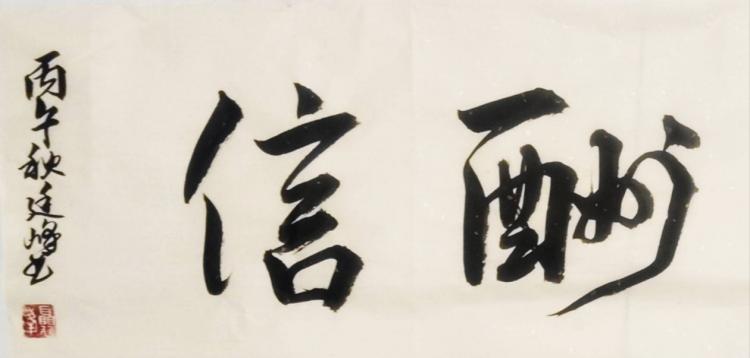 酬信
丙午秋廷峰书